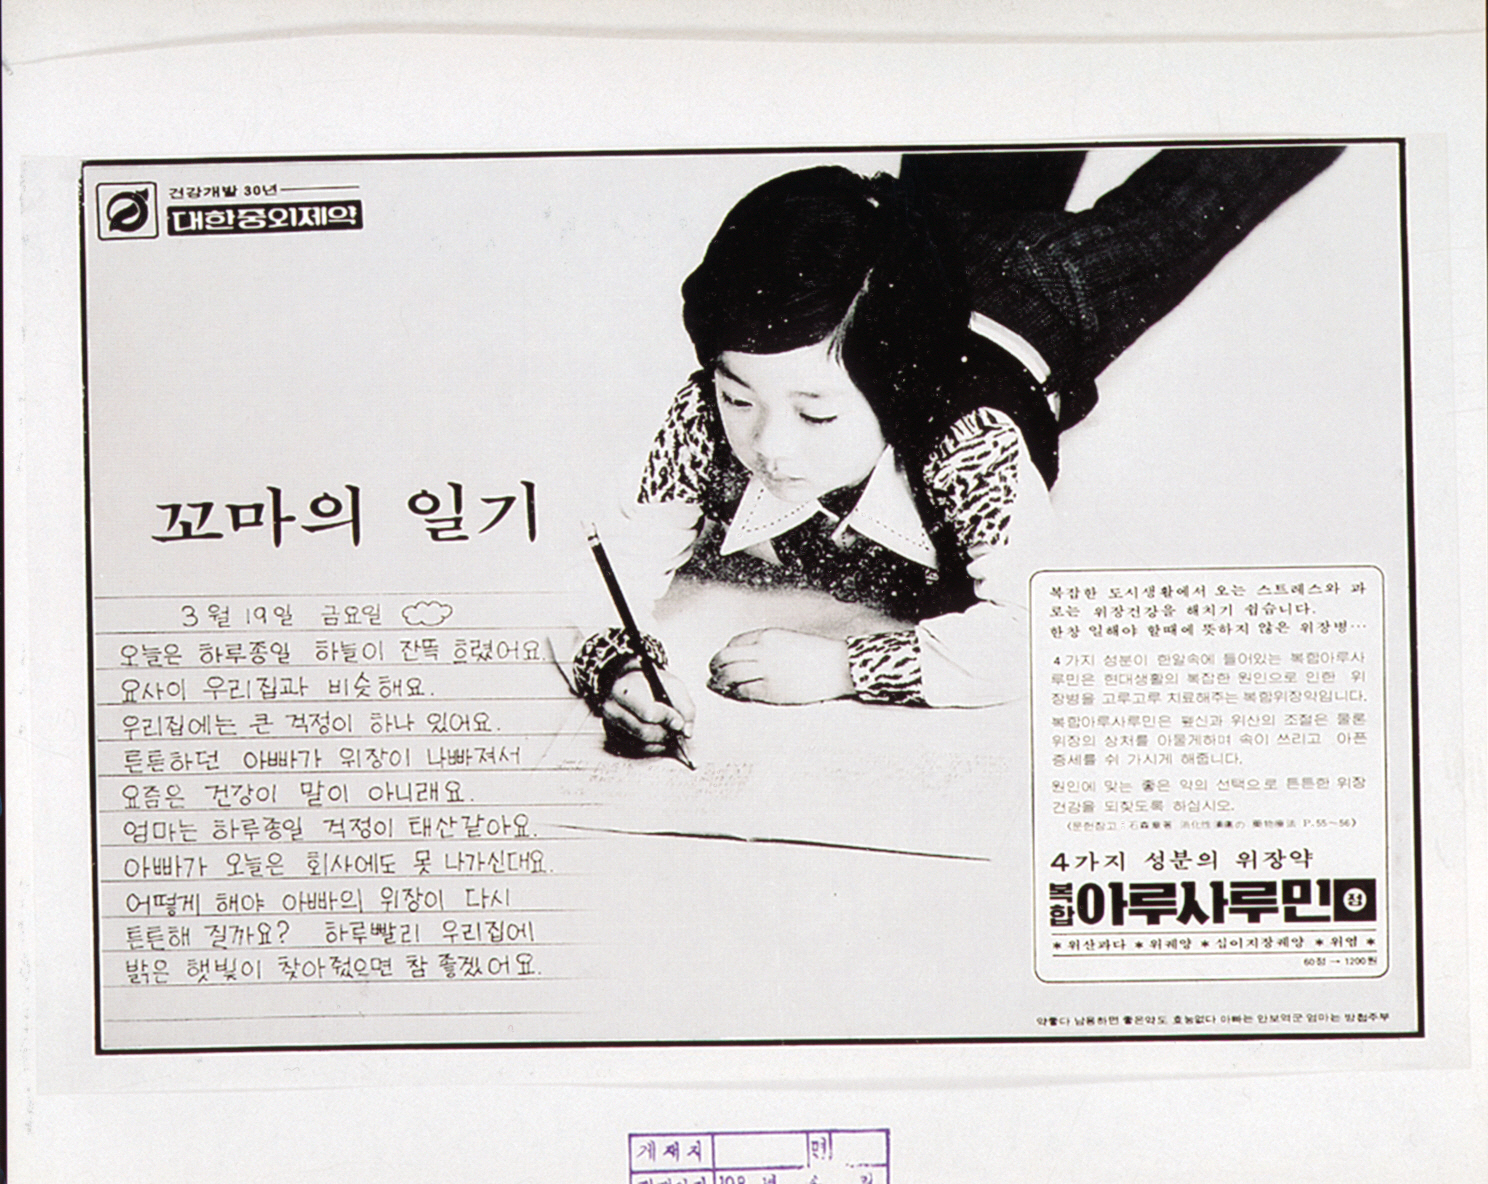 건강개발 30년
대한중외제약
꼬마의 일기
3월 19일 금요일
오늘은 하루종일 하늘이 잔뜩 흐렸어요.
요사이 우리집과 비슷해요.
우리집에는 큰 걱정이 하나 있어요.
튼튼하던 아빠가 위장이 나빠져서
요즘은 건강이 말이 아니래요.
엄마는 하루종일 걱정이 태산같아요.
아빠가 오늘은 회사에도 못 나가신대요.
어떻게 해야 아빠의 위장이 다시
튼튼해 질까요? 하루빨리 우리집에
밝은 햇빛이 찾아줬으면 참 좋겠어요.
복잡한 도시생활에서 오는 스트레스와 과
로는 위장건강을 해치기 쉽습니다.
한창 일해야 할때에 뜻하지 않은 위장병…
4가지 성분이 한알속에 들어있는 복합아루사
루민은 현대생활의 복잡한 원인으로 인한 위
장병을 고루고루 치료해주는 복합위장약입니다.
복합아루사루민은 펩신과 위산의 조절은 물론
위장의 상처를 아물게하며 속이 쓰리고 아픈
증세를 쉬 가시게 해줍니다.
원인에 맞는 좋은 약의 선택으로 튼튼한 위장
건강을 되찾도록 하십시오.
(문헌참고: 石森章著 消化性潰瘍の 藥物療法 P.55~56)
4가지 성분의 위장약
복합 아루사루민 정
* 위산과다 * 위궤양 * 십이지장궤양 * 위염 *
60정 → 1200원
약좋다 남용하면 좋은약도 효능없다 아빠는 안보역군 엄마는 방첩주부
게재지 면